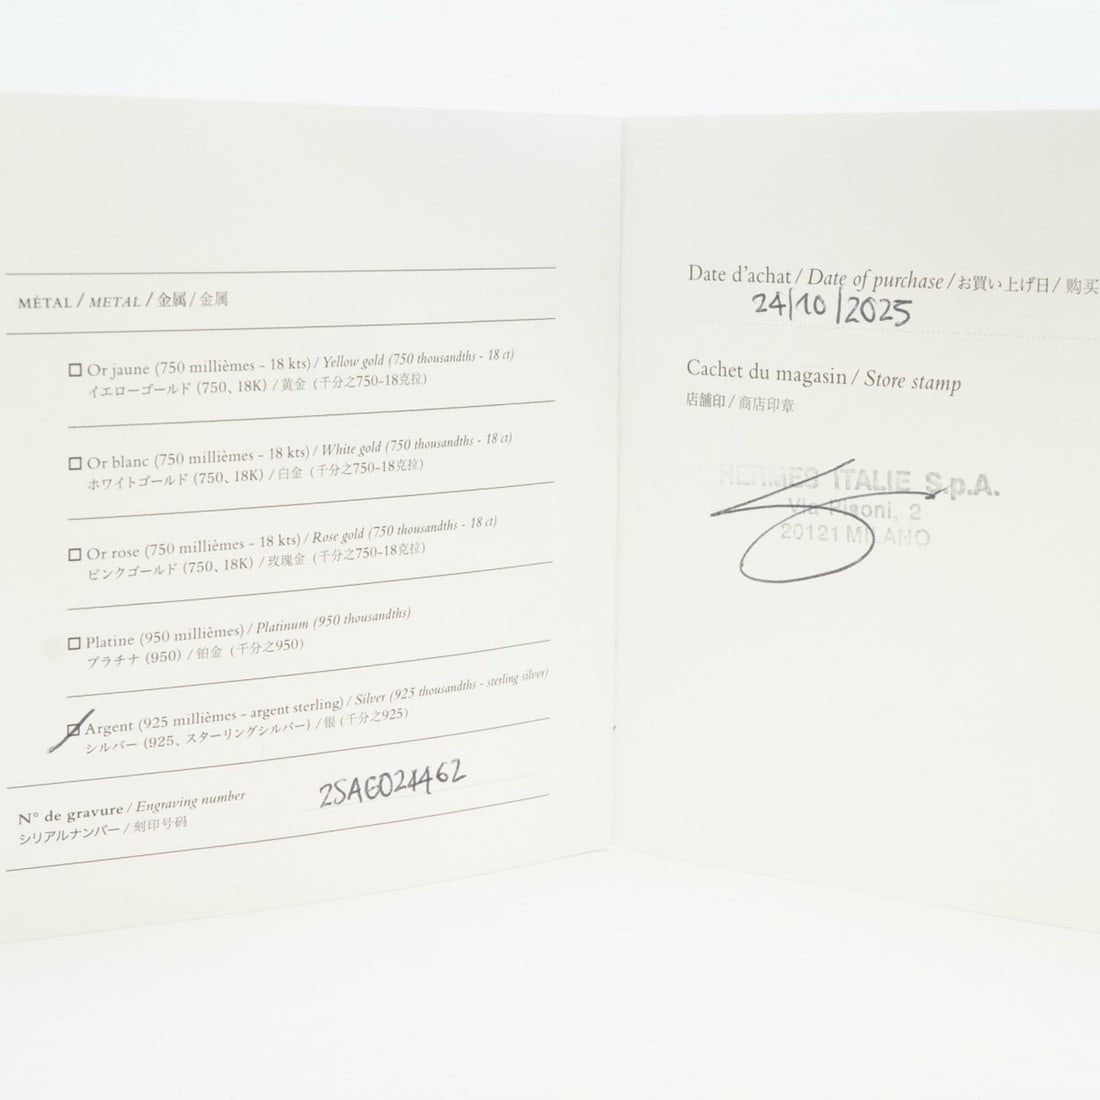 MÉTAL / METAL / 金属 / 金属
Or jaune (750 millièmes - 18 kts) / Yellow gold (750 thousandths - 18 ct)
イエローゴールド (750、18K) / 黄金 (千分之750-18克拉)
Or blanc (750 millièmes - 18 kts) / White gold (750 thousandths - 18 ct)
ホワイトゴールド (750、18K) / 白金 (千分之750-18克拉)
Or rose (750 millièmes - 18 kts) / Rose gold (750 thousandths - 18 ct)
ピンクゴールド (750、18K) / 玫瑰金 (千分之750-18克拉)
Platine (950 millièmes) / Platinum (950 thousandths)
プラチナ (950) / 铂金 (千分之950)
Argent (925 millièmes - argent sterling) / Silver (925 thousandths - sterling silver)
シルバー (925、スターリングシルバー) / 银 (千分之925)
N° de gravure / Engraving number
シリアルナンバー / 刻印号码
Date d'achat / Date of purchase / お買い上げ日 / 购买
24/10/2025
Cachet du magasin / Store stamp
店舗印 / 商店印章
HERMES ITALIE S.p.A.
Via Pisoni, 2
20121 MILANO